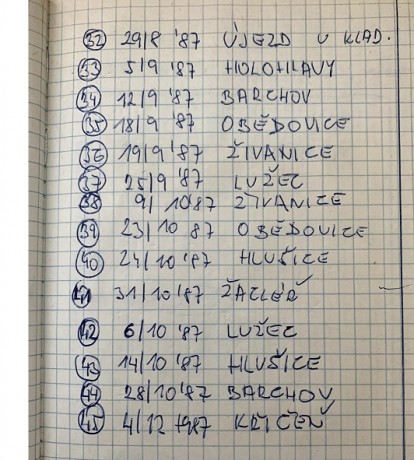 32 29/8 '87 ÚJEZD U KLAD.
33 5/9 '87 HOLOHLAVY
34 12/9 '87 BARCHOV
35 18/9 '87 OBĚDOVICE
36 19/9 '87 ŽIVANICE
37 25/9 '87 LUŽEC
38 9/10 '87 ŽIVANICE
39 23/10 '87 OBĚDOVICE
40 24/10 '87 HLUŠICE
41 31/10 '87 ŽACLÉŘ
42 6/10 '87 LUŽEC
43 14/10 '87 HLUŠICE
44 28/10 '87 BARCHOV
45 4/12 1987 KŘIČEŇ